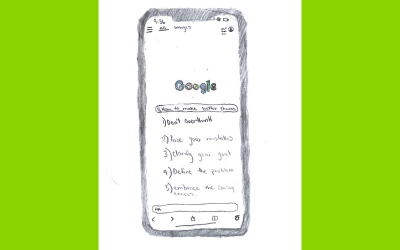 9:56
ALL images
Google
How to make better choices
1) Don't overthink
2) Face your mistakes
3) clarify your goal
4) Define the problem
5) embrace the
AA